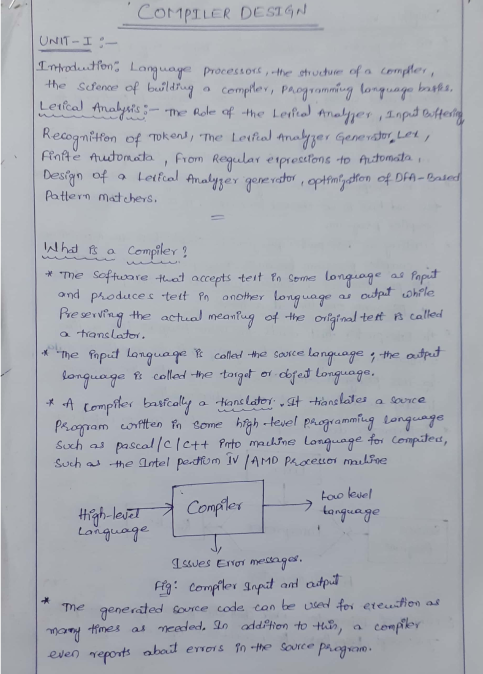 COMPILER DESIGN
UNIT-I :-
Introduction: Language processors, the structure of a compiler,
the science of building a compiler, programming language basics.
Lexical Analysis:- The Role of the Lexical Analyzer, Input Buffering
Recognition of Tokens, The Lexical Analyzer Generator Lex,
Finite Automata, From Regular expressions to Automata,
Design of a Lexical Analyzer generator, optimization of DFA-Based
Pattern Matchers.
What is a Compiler?
* The Software that accepts text in Some language as input
and produces text in another language as output while
Preserving the actual meaning of the original text is called
a translator.
* The input language is called the source language; the output
language is called the target or object language.
* A compiler basically a translator. It translates a source
Program written in some high-level programming language
Such as pascal/C/C++ into machine language for computers,
Such as the Intel pentium IV/AMD Processor machine
High-level
Language
Compiler
Low level
language
Issues Error messages.
Fig: Compiler Input and output
* The generated source code can be used for execution as
many times as needed. In addition to this, a compiler
even reports about errors in the source program.